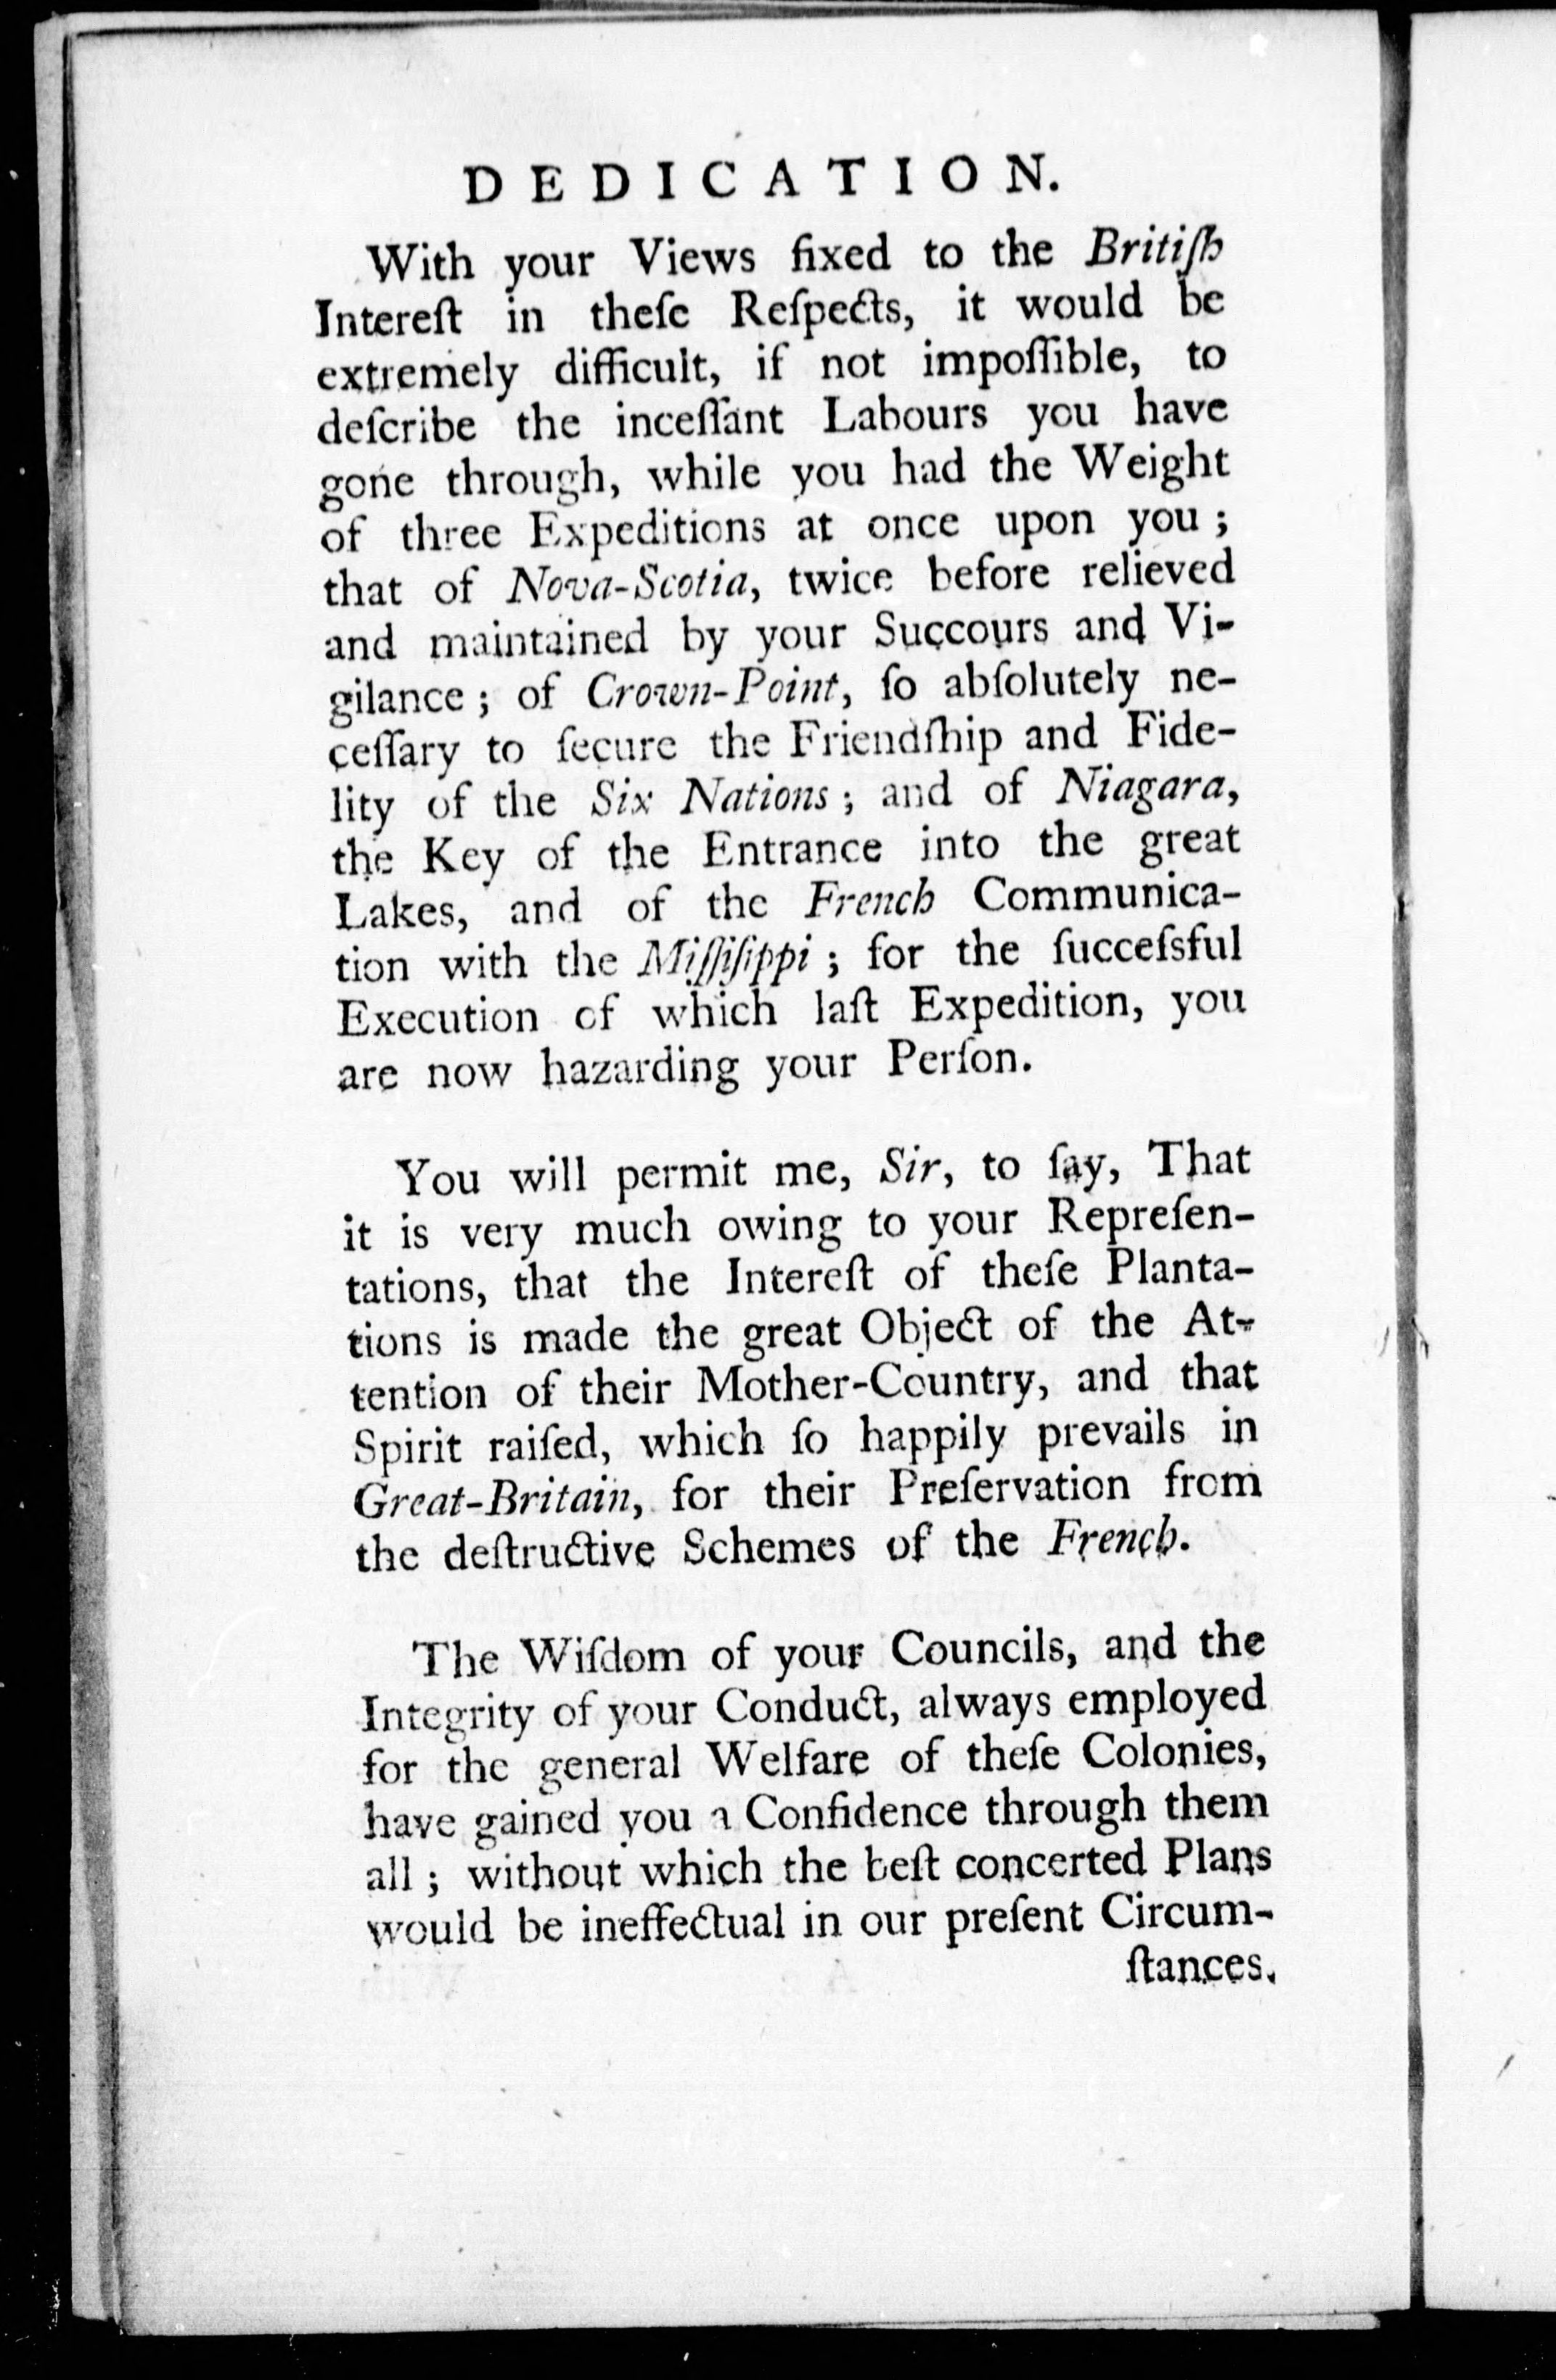 DEDICATION.
With your Views fixed to the Britiſh
Intereſt in theſe Reſpects, it would be
extremely difficult, if not impoſſible, to
deſcribe the inceſſant Labours you have
gone through, while you had the Weight
of three Expeditions at once upon you ;
that of Nova-Scotia, twice before relieved
and maintained by your Succours and Vi-
gilance ; of Crown-Point, ſo abſolutely ne-
ceſſary to ſecure the Friendſhip and Fide-
lity of the Six Nations ; and of Niagara,
the Key of the Entrance into the great
Lakes, and of the French Communica-
tion with the Miſſiſippi ; for the ſucceſsful
Execution of which laſt Expedition, you
are now hazarding your Perſon.
You will permit me, Sir, to ſay, That
it is very much owing to your Repreſen-
tations, that the Intereſt of theſe Planta-
tions is made the great Object of the At-
tention of their Mother-Country, and that
Spirit raiſed, which ſo happily prevails in
Great-Britain, for their Preſervation from
the deſtructive Schemes of the French.
The Wiſdom of your Councils, and the
Integrity of your Conduct, always employed
for the general Welfare of theſe Colonies,
have gained you a Confidence through them
all ; without which the beſt concerted Plans
would be ineffectual in our preſent Circum-
ſtances.